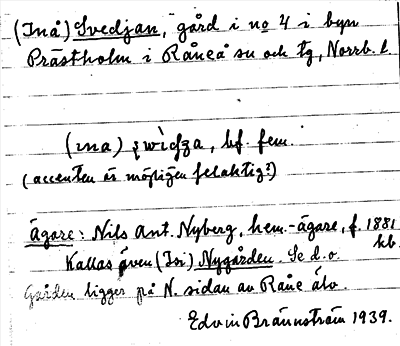 (Inå) Svedjan, gård i no 4 i byn
Prästholm i Råneå sn och tg, Norrb. l.
(ına) ʒwìdʒa, bf. fem.
(accenten är möjligen felaktig?)
Ägare: Nils Ant. Nyberg, hem.-ägare, f. 1881
kb.
Kallas även (Isi) Nygården. Se d.o.
Gården ligger på N. sidan av Råne älv.
Edvin Brännström 1939.